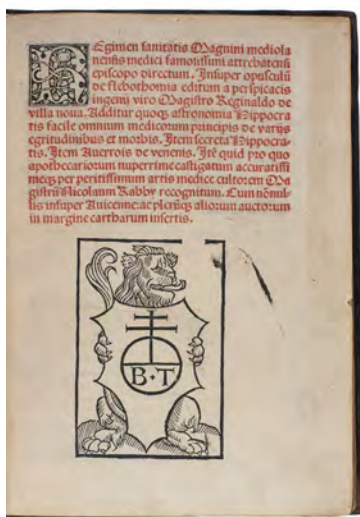 Regimen sanitatis Magnini mediola
nensis medici famosissimi attrebatensi
episcopo directum. Insuper opusculū
de flebothomia editum a perspicacis
ingenij viro Magistro Reginaldo de
villa noua. Additur quoqꝫ astronomia Hippocra
tis facile omnium medicorum principis de varijs
egritudinibus et morbis. Item secreta Hippocra-
tis. Item Auerrois de venenis. Itē quid pro quo
apothecariorum nuperrime castigatum accuratissi
meqꝫ per peritissimum artis medice cultorem Ma
gistrū Nicolaum Rabby recognitum. Cum nōnul-
lis insuper Auicenne: ac plerisqꝫ aliorum auctorum
in margine cartharum insertis.
B · T